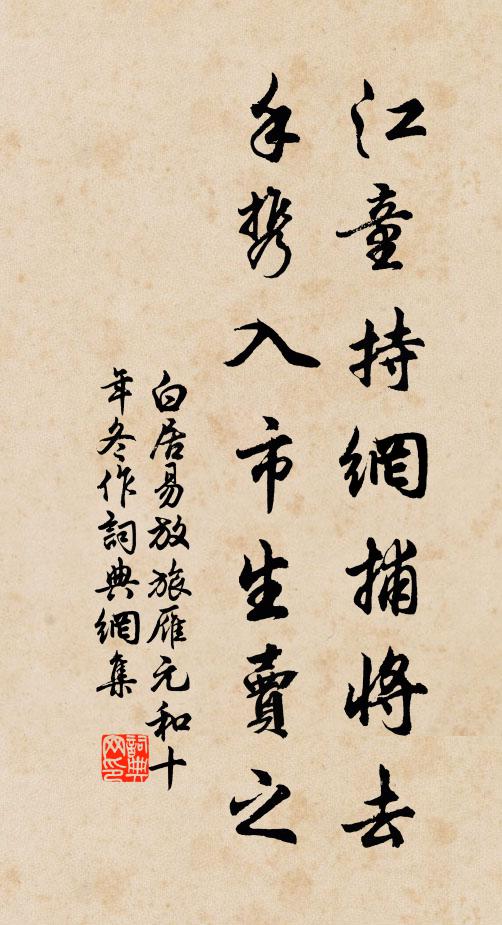 江童持網捕將去
手携入市生賣之
白居易放旅雁元和十
年冬作詞典網集
詞典
网印